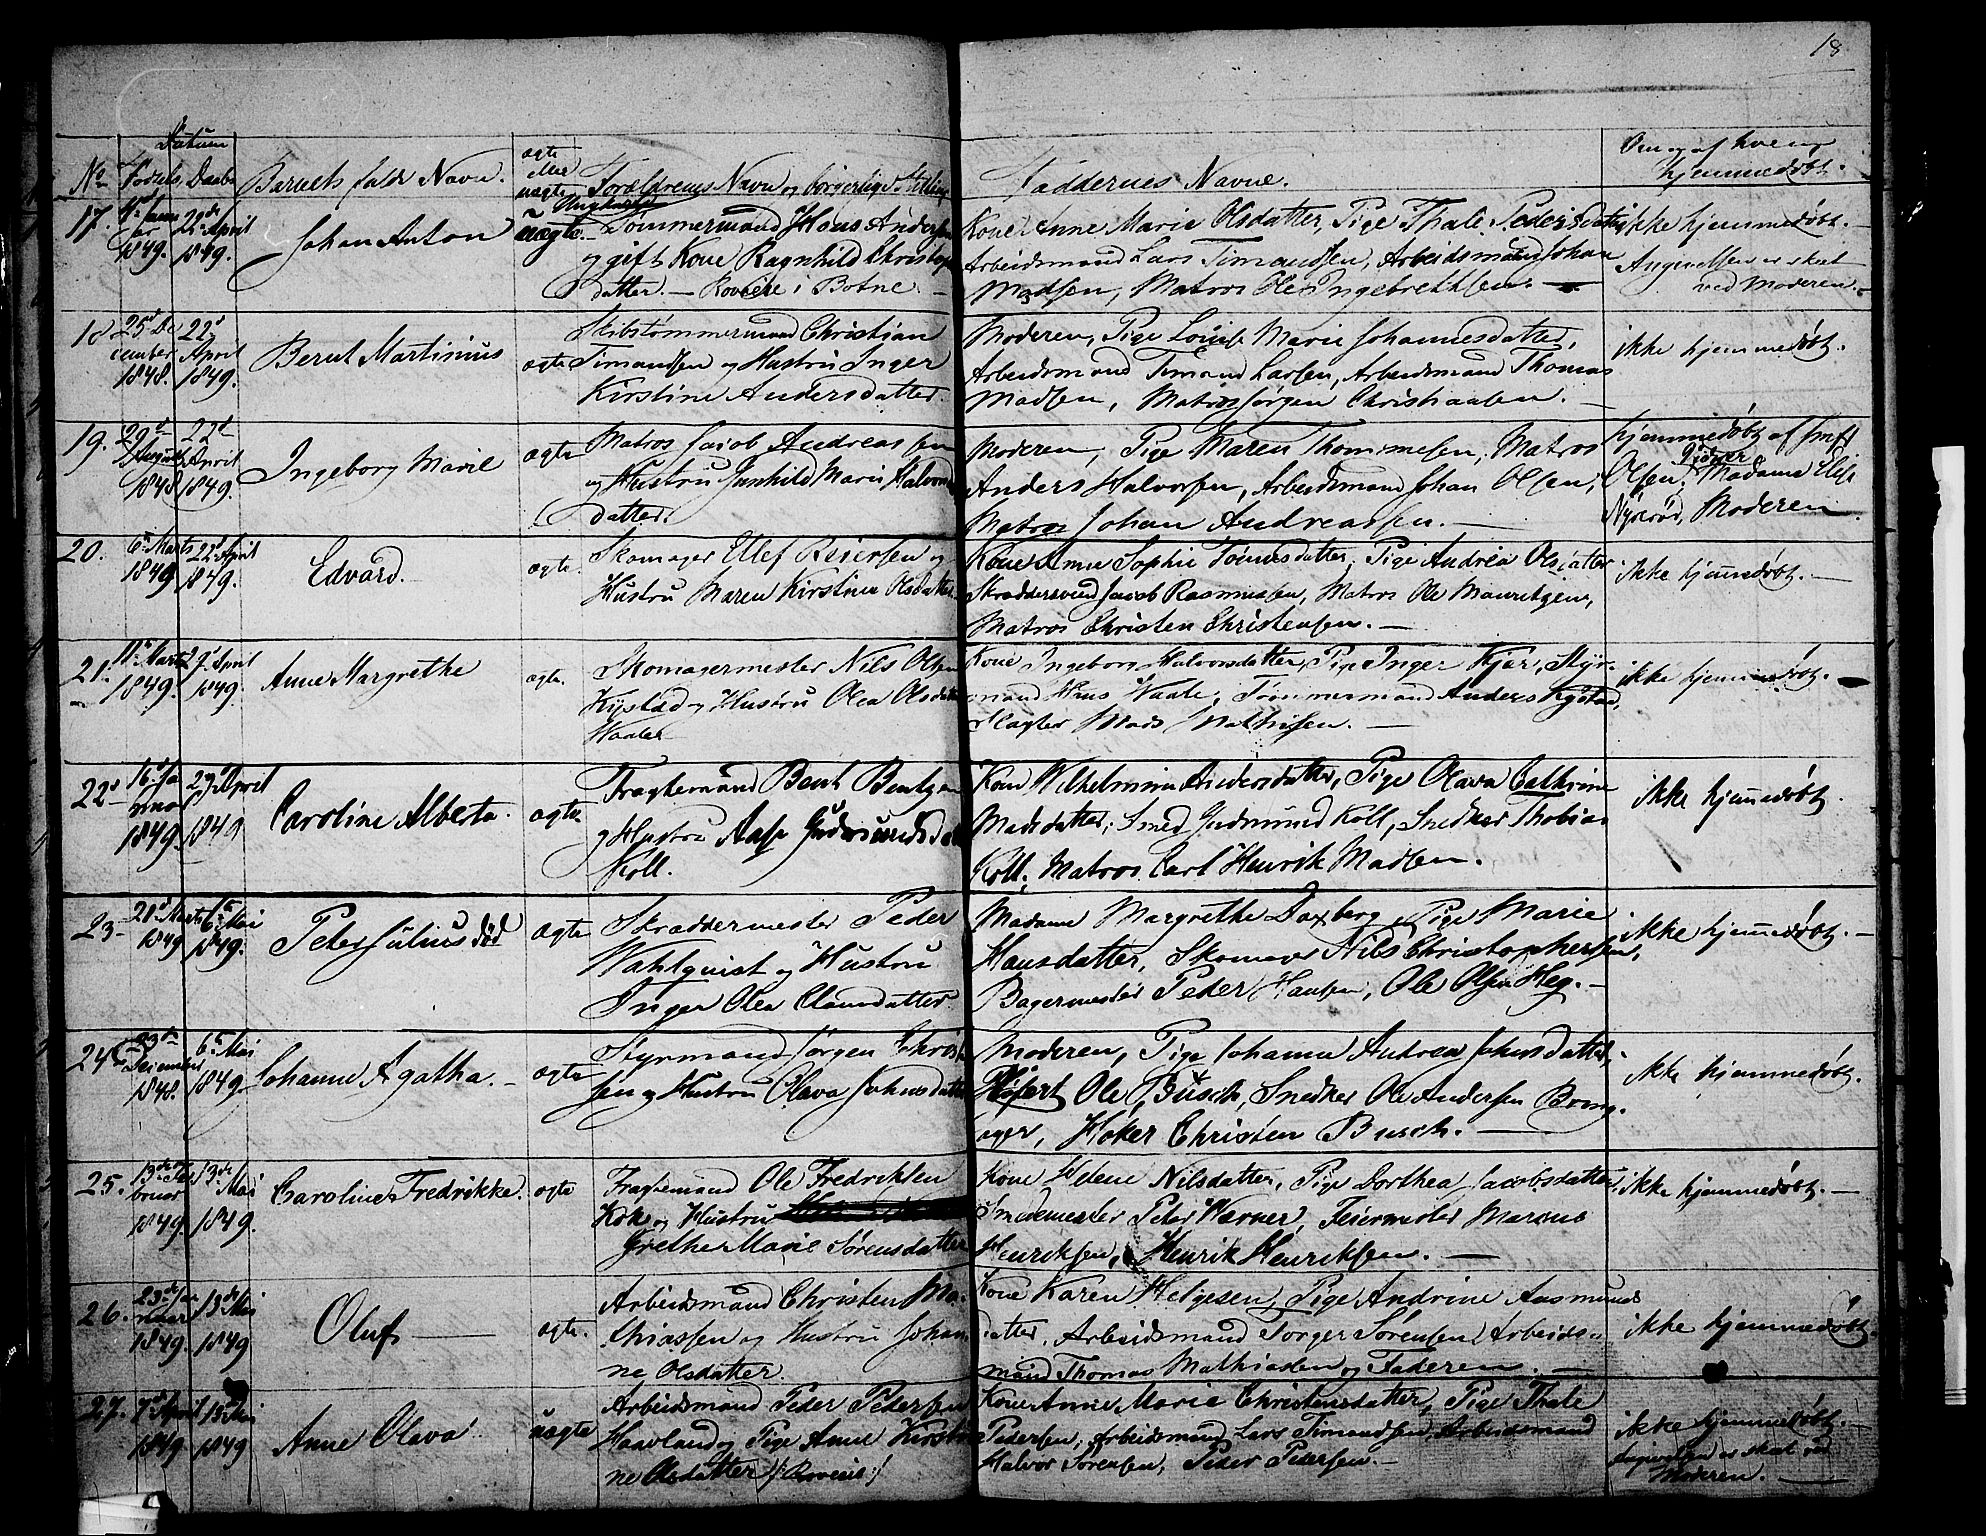 18
Datum
No Fødsels Daabs Barnets fulde Navn. ægte eller uægte Forældrenes Navn og borgerlige Stilling Faddernes Navne. Om og af hvem hjemmedøbt.
17. 1849. 22de April 1849. Johan Anton uægte. Ungkarl Tømmermand Hans Anders
og gift Kone Ragnhild Christop
datter. — Roviere i Botne. —
Kone Anne Marie Olsdatter, Pige Thale Pedersdatter
Arbeidsmand Lars Timandsen, Arbeidsmand Johan
Madsen, Matros Ole Ingebrethsen. —
ikke hjemmedøbt. —
Angivelsen er skeet
ved Moderen. —
18 25de December 1848. 22d April 1849. Bernt Martinius ægte
Skibstømmermand Christian
Timandsen og Hustru Inger
Kirstine Andersdatter.
Moderen, Pige Louise Marie Johannesdatter,
Arbeidsmand Timand Larsen, Arbeidsmand Thomas
Madsen, Matros Jørgen Christiansen. —
ikke hjemmedøbt.
19. 29de August 1848 22de April 1849. Ingeborg Marie ægte
Matros Jacob Andreassen
og Hustru Gunhild Marie Halvors
datter.
Moderen, Pige Maren Thommesen, Matros
Anders Halvorsen, Arbeidsmand Johan Olsen,
Matros Johan Andreassen. —
hjemmedøbt af
Olsen, Vidner Madame Elise
Nyerød, Moderen.
20. 6te Marts 1849 22de April 1849. Edvard. ægte.
Skomager Ellef Reiersen og
Hustru Maren Kirstine Olsdatter.
Kone Anne Sophie Tønnesdatter, Pige Andrea Olsdatter
Skræddersvend Jacob Rasmussen, Matros Ole Mauritzen,
Matros Christen Christensen. —
ikke hjemmedøbt. —
21. 11te Marts 1849. 29d April 1849. Anne Margrethe ægte.
Skomagermester Nils Olsen
Kystad og Hustru Olea Olsdatter
Waale
Kone Ingeborg Halvorsdatter, Pige Inger Kjær, Styr-
mand Hans Waale, Tømmermand Anders Kystad,
Slagter Mads Mathisen. —
ikke hjemmedøbt. —
22 16d Januar 1849. 29d April 1849 Caroline Alberta. ægte
Fragtemand Bent Bentzen
og Hustru Aase Gudmundsdatter
Koll.
Kone Wilhelmine Andersdatter, Pige Olava Cathrine
Madsdatter, Smed Gudmund Koll, Snedker Thobias
Koll, Matros Carl Henrik Madsen.
ikke hjemmedøbt.
23 - 21d Marts 1849 6te Mai 1849. Peter Julius død ægte
Skræddermester Peder
Wahlquist og Hustru
Inger Olea Clausdatter
Madame Margrethe Daxberg, Pige Marie
Hansdatter, Skomager Nils Christophersen,
Bagermester Peder Hansen, Ole Olsen Heg. —
ikke hjemmedøbt. —
24 23de December 1848. 6te Mai 1849. Johanne Agatha. — ægte
Styrmand Jørgen Christ
sen og Hustru Olava Johnsdatter
Moderen, Pige Johanne Andrea Johnsdatter,
Ole Busch, Snedker Ole Andersen Bring-
ager, Høker Christen Busch. —
ikke hjemmedøbt.
25. 13de Februar 1849. 13de Mai 1849. Caroline Fredrikke. ægte
Fragtemand Ole Fredriksen
Kok og Hustru
Grethe Marie Sørensdatter
Kone Helene Nilsdatter, Pige Dorthea Jacobsdatter
Smedemester Peter Werner, Feiermester Marcus
Henriksen, Henrik Henriksen. —
ikke hjemmedøbt. —
26. 23de Januar 1849. 13de Mai 1849 Oluf — ægte.
Arbeidsmand Christen Ma-
thiassen og Hustru Johan
ne Olsdatter.
Kone Karen Helgesen, Pige Andrine Aasmunds
datter, Arbeidsmand Torger Sørensen, Arbeids-
mand Thomas Mathiassen og Faderen. —
ikke hjemmedøbt.
27. 7d April 1849 13de Mai 1849 Anne Olava uægte
Arbeidsmand Peder Pedersen
Haavland og Pige Anne Kirsti
ne Olsdatter
Kone Anne Marie Christensdatter, Pige Thale
Pedersen, Arbeidsmand Lars Timandsen, Arbeidsmand
Halvor Sørensen, Peder Pedersen. —
ikke hjemmedøbt. —
Angivelsen er skeet ved
Moderen. —